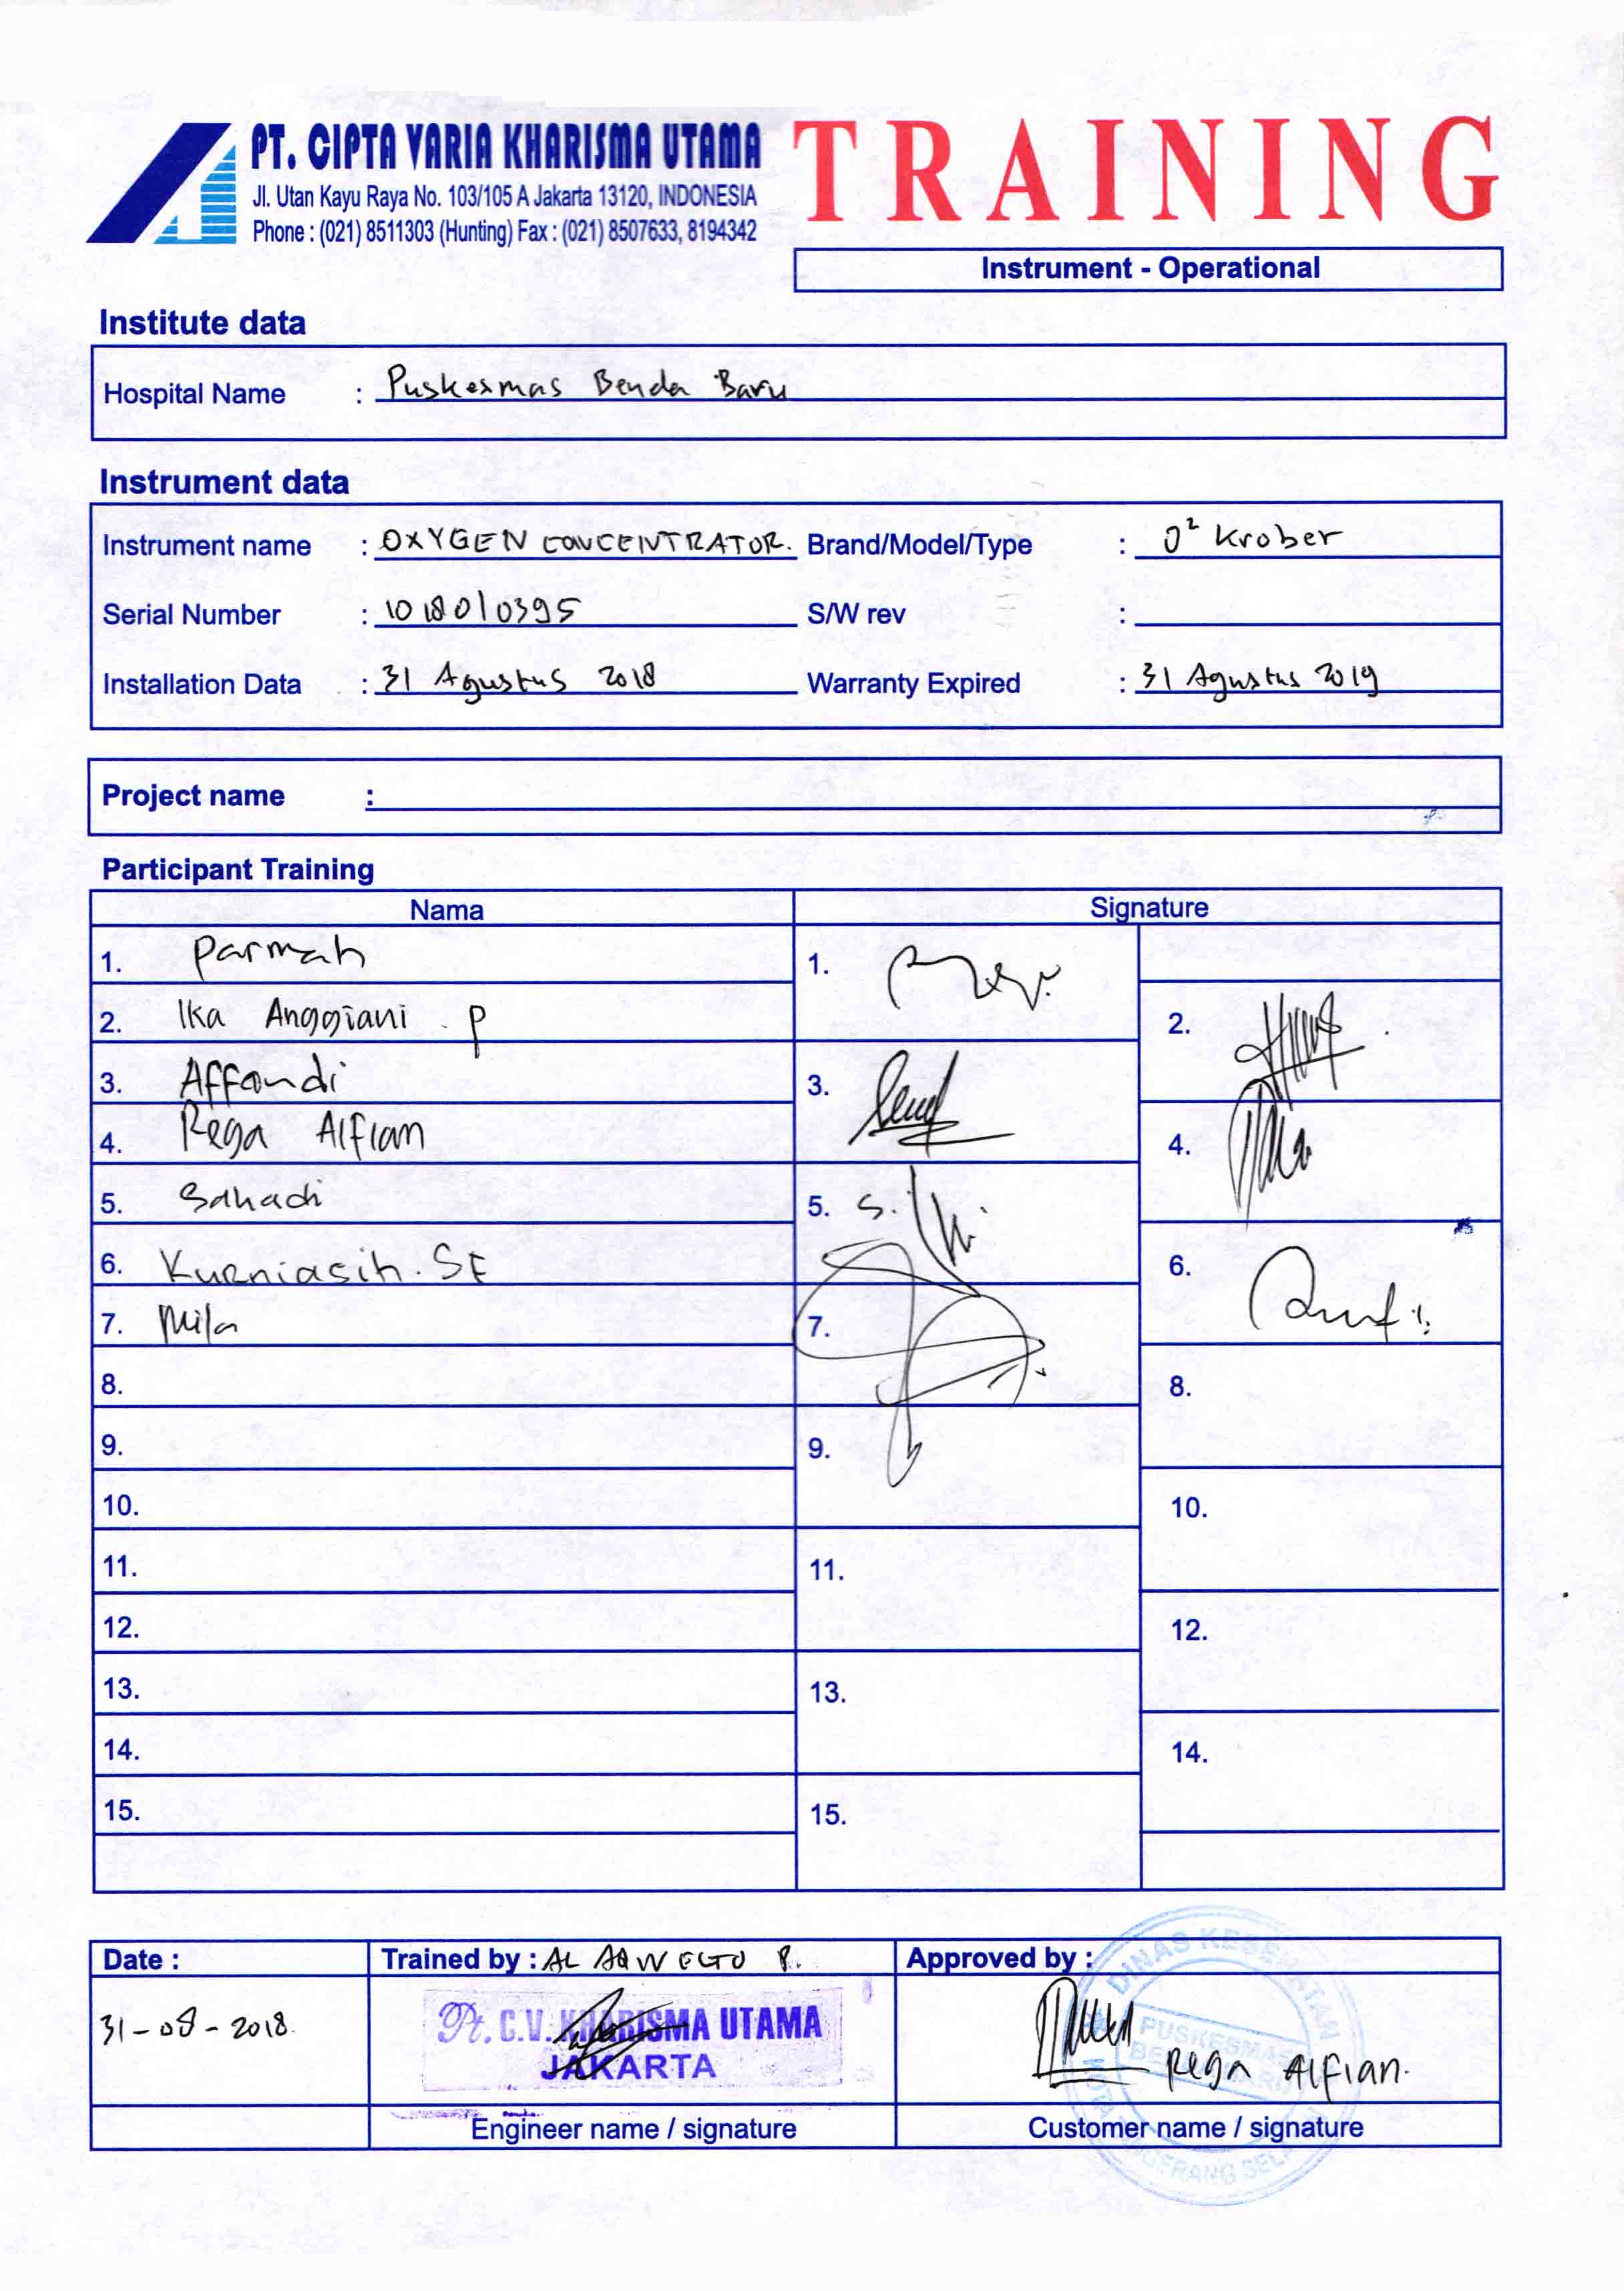 PT. CIPTA VARIA KHARISMA UTAMA
Jl. Utan Kayu Raya No. 103/105 A Jakarta 13120, INDONESIA
Phone : (021) 8511303 (Hunting) Fax : (021) 8507633, 8194342
TRAINING
Instrument - Operational
Institute data
Hospital Name : Puskesmas Benda Baru
Instrument data
Instrument name : OXYGEN CONCENTRATOR. Brand/Model/Type : O² Krober
Serial Number : 1018010395 S/W rev :
Installation Data : 31 Agustus 2018 Warranty Expired : 31 Agustus 2019
Project name :
Participant Training
Nama Signature
1. Parmah 1.
2. Ika Anggiani . P 2.
3. Affandi 3.
4. Rega Alfian 4.
5. Sahadi 5.
6. Kurniasih. SE 6.
7. Mila 7.
8. 8.
9. 9.
10. 10.
11. 11.
12. 12.
13. 13.
14. 14.
15. 15.
Date : Trained by : AL Approved by :
31-08-2018.
Pt. C.V. KHARISMA UTAMA
JAKARTA
DINAS KESEHATAN
PUSKESMAS
BENDA BARU
KOTA TANGERANG SELATAN
Rega Alfian.
Engineer name / signature Customer name / signature